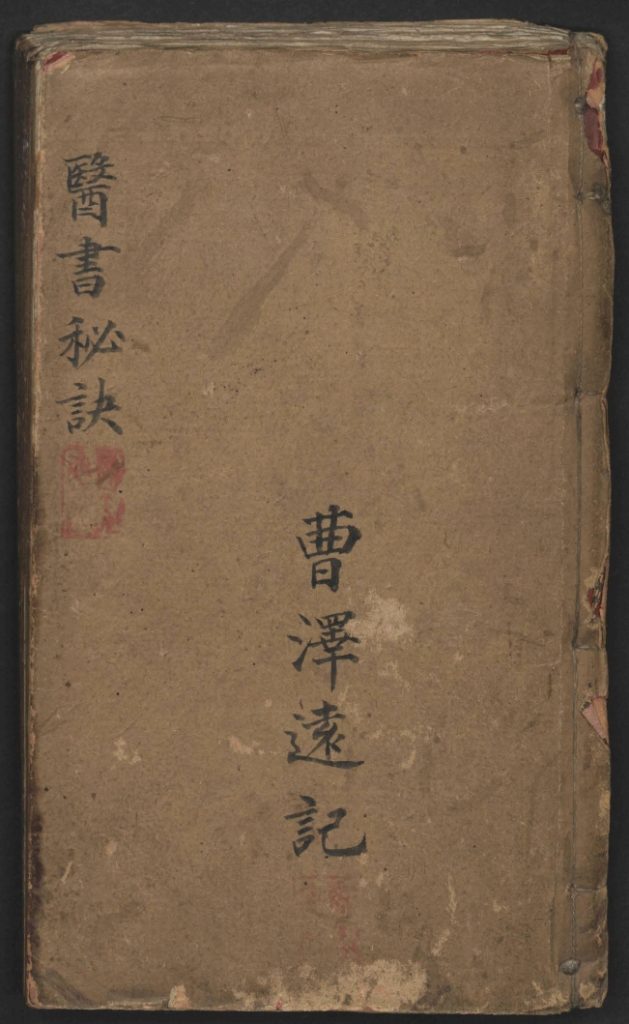 醫書秘訣
曹澤遠記